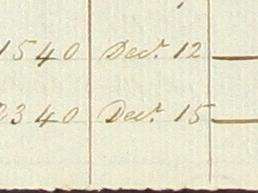 1540 Decr. 12
2340 Decr. 15